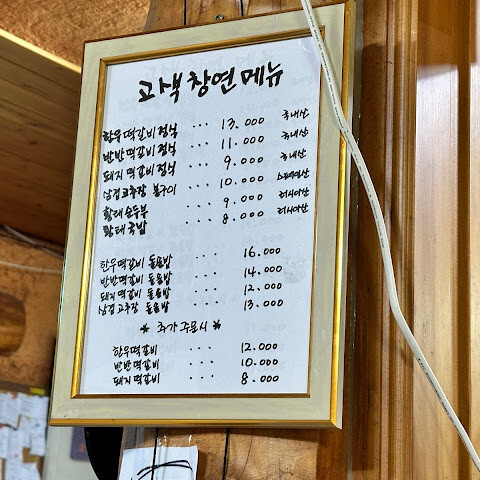 고색창연 메뉴
한우떡갈비정식 ... 13.000 국내산
반반떡갈비정식 ... 11.000 국내산
돼지떡갈비정식 ... 9.000 국내산
삼겹고추장 불구이 ... 10.000 스페인산
황태순두부 ... 9.000 러시아산
황태국밥 ... 8.000 러시아산
한우떡갈비 돌솥밥 ... 16.000
반반떡갈비 돌솥밥 ... 14.000
돼지떡갈비 돌솥밥 ... 12.000
삼겹고추장 돌솥밥 ... 13.000
* 추가 주문시 *
한우떡갈비 ... 12.000
반반떡갈비 ... 10.000
돼지떡갈비 ... 8.000